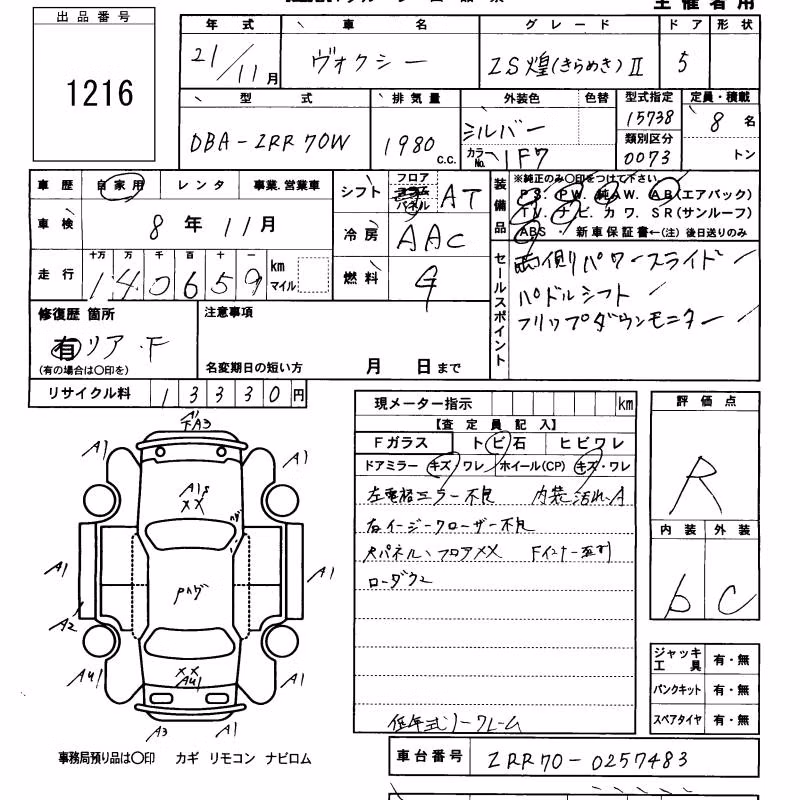 主催者用
出品番号
1216
年式 車名 グレード ドア 形状
21/11月 ヴォクシー ZS煌(きらめき)Ⅱ 5
型式 排気量 外装色 色替 型式指定 定員・積載
DBA-ZRR70W 1980 c.c. シルバー 15738 8名
カラーNo. 1F7 類別区分 0073 トン
車歴 自家用 レンタ 事業.営業車
車検 8年11月
走行 十万 万 千 百 十 一
140659 km マイル
シフト フロア コラム パネル AT
冷房 AAC
燃料
装備品 ※純正のみ〇印をつけて下さい
PS. PW. 純AW. AB(エアバック)
TV. ナビ. カワ. SR(サンルーフ)
ABS ・ 新車保証書←(注) 後日送りのみ
セールスポイント
両側パワースライド
パドルシフト
フリップダウンモニター
修復歴 箇所
有 リア・F
(有の場合は〇印を)
注意事項
名変期日の短い方 月 日まで
リサイクル料 13330円
現メーター指示 km
【査定員記入】
Fガラス トビ石 ヒビワレ
ドアミラー キズ・ワレ ホイール(CP) キズ・ワレ
左電格ミラー不良 内装汚れ・A
右イージークローザー不良
フロアXX
低年式リークレーム
評価点
R
内装 外装
b C
ジャッキ工具 有・無
パンクキット 有・無
スペアタイヤ 有・無
A1
FA3
A1
A1
XX
A1
A1
A2
XX
AU1
AU1
A1
A3
A1
事務局預り品は〇印 カギ リモコン ナビロム
車台番号 ZRR70-0257483